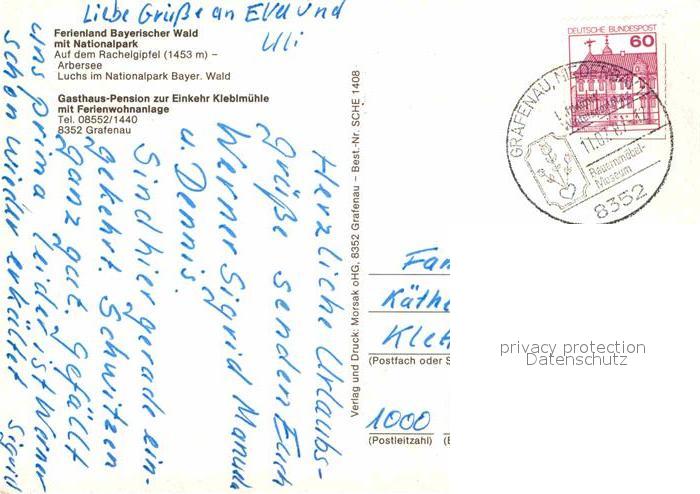 Liebe Grüße an Eva und
Uli
Ferienland Bayerischer Wald
mit Nationalpark
Auf dem Rachelgipfel (1453 m) –
Arbersee
Luchs im Nationalpark Bayer. Wald
Gasthaus-Pension zur Einkehr Kleblmühle
mit Ferienwohnanlage
Tel. 08552/1440
8352 Grafenau
Herzliche Urlaubs-
grüße senden Euch
Werner Sigrid Manuela
u. Dennis.
Sind hier gerade ein-
gekehrt. Schwitzen
ganz gut. Gefällt
uns prima leider ist Werner
schon wieder erkältet Sigrid
Verlag und Druck: Morsak oHG, 8352 Grafenau – Best.-Nr. SCHE 1408
DEUTSCHE BUNDESPOST
60
GRAFENAU, NIEDERBAY
11.07.87
Bauernmöbel-
Museum
8352
Fam
Käthe
Klet
(Postfach oder S
1000
(Postleitzahl)
privacy protection
Datenschutz